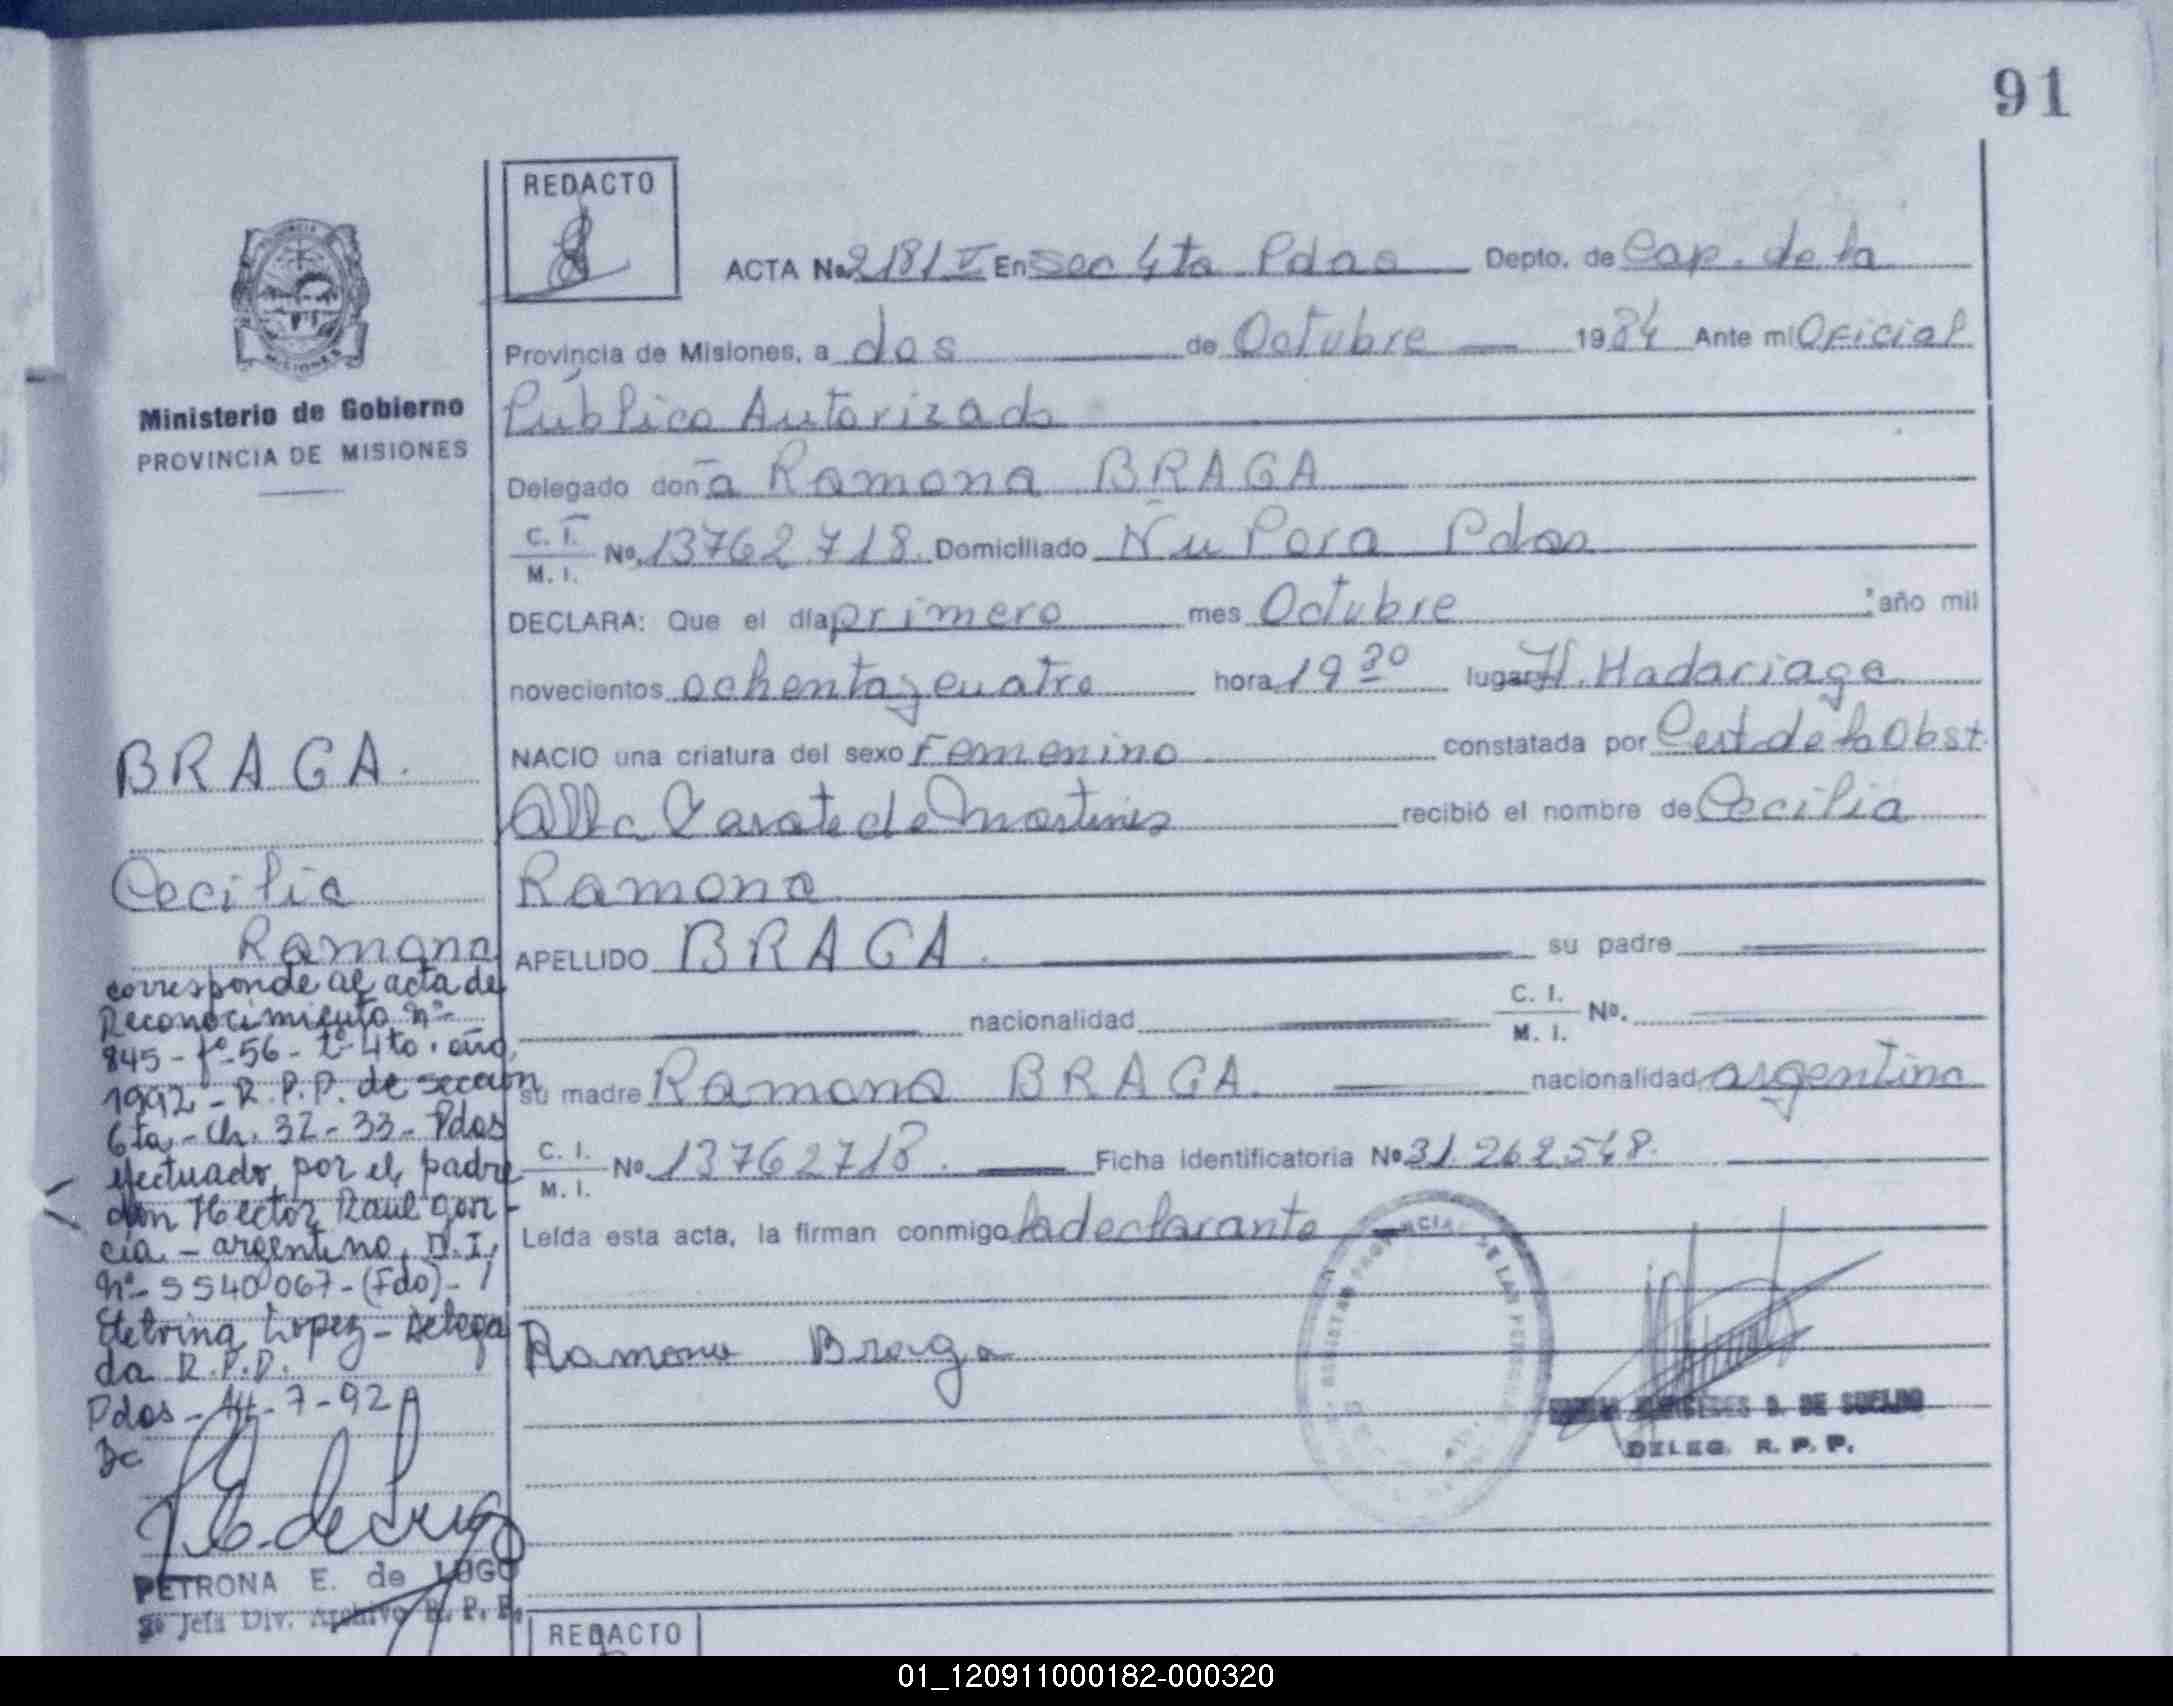 91
REDACTO
ACTA No 2181 I En Sec 4ta Pdas Depto. de Cap. de la
Provincia de Misiones, a dos de Octubre 1984 Ante mi Oficial
Público Autorizado
Delegado doña Ramona BRAGA
C. I.
M. I.
No. 13762718. Domiciliado Ñu Pora Pdas
DECLARA: Que el día primero mes Octubre año mil
novecientos ochenta y cuatro hora 19 30 lugar H. Madariaga
NACIO una criatura del sexo Femenino constatada por Cert de la Obst.
Zarate de Martinez recibió el nombre de Cecilia
Ramona
APELLIDO BRAGA. su padre
nacionalidad C. I.
M. I. No.
su madre Ramona BRAGA. nacionalidad argentina
C. I.
M. I.
No 13762718. Ficha identificatoria No 31.262.548.
Leída esta acta, la firman conmigo la declarante
Ramona Braga
D. DE SUELDO
DELEG. R. P. P.
PROVINCIA DE MISIONES
Ministerio de Gobierno
PROVINCIA DE MISIONES
BRAGA.
Cecilia
Ramona
corresponde al acta de
Reconocimiento nº
845 - fº - 56 - tº - 4to. año
1992 - R. P. P. de sección
6ta - Ch. 32 - 33 - Pdas
efectuado por el padre
don Hector Raul Gar-
cia - argentino, D. I,
nº - 5540067 - (Fdo) -
Lopez - Delega
da R. P. P.
Pdas - 14 - 7 - 92
PETRONA E. de LUGO
2º Jefa Div. Archivo R. P. P.
REDACTO
01_120911000182-000320